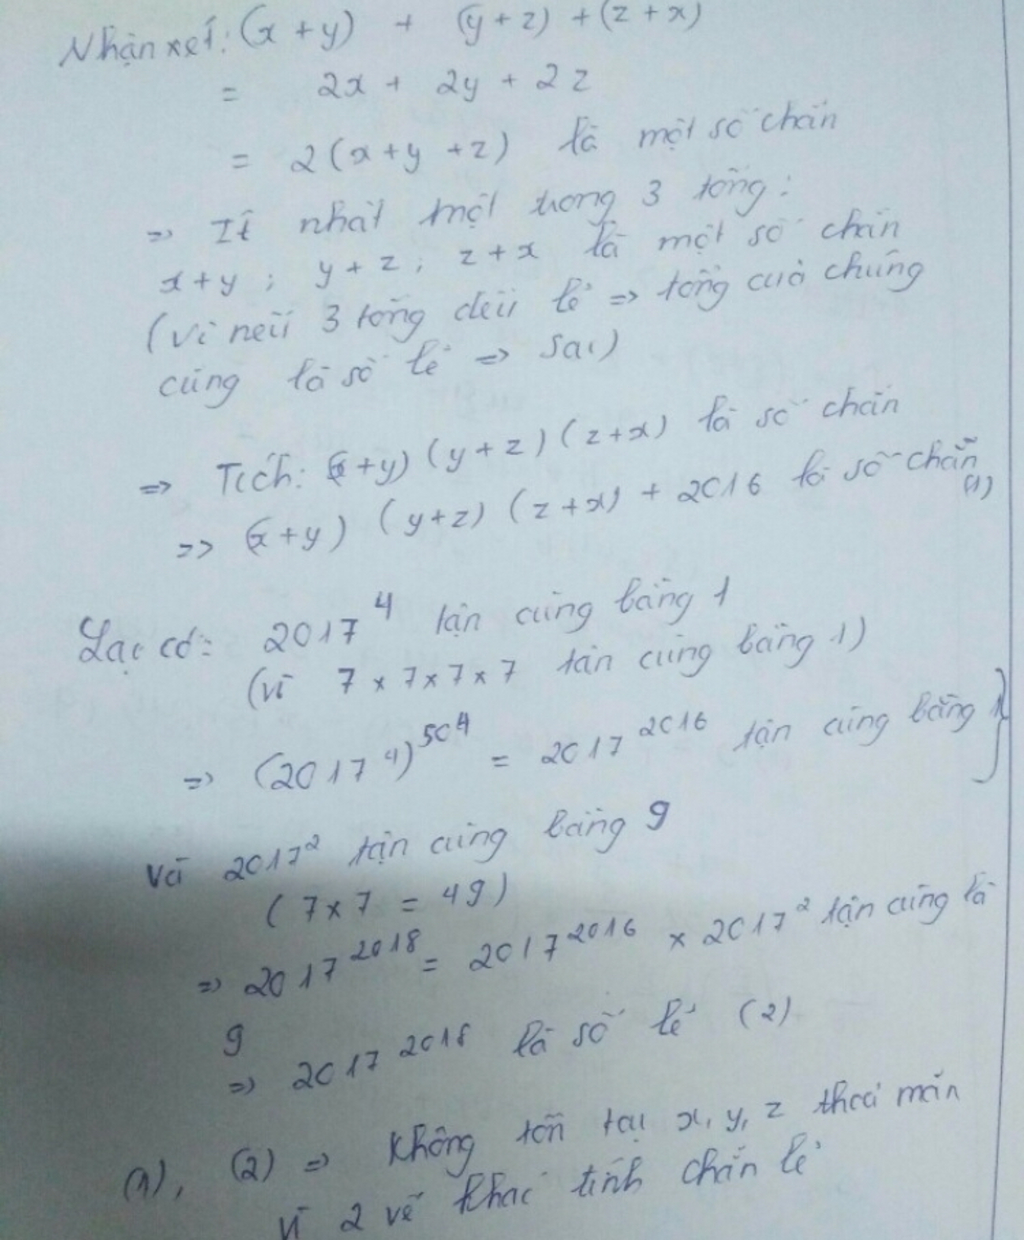 Nhận xét: (x + y) + (y + z) + (z + x)
= 2x + 2y + 2z
= 2(x+y +z) là một số chẵn
=> Ít nhất một trong 3 tổng:
x+y ; y+z ; z+x là một số chẵn
(Vì nếu 3 tổng đều lẻ => tổng của chúng
cũng là số lẻ => sai)
=> Tích: (x+y)(y+z)(z+x) là số chẵn
=> (x+y) (y+z) (z+x) + 2016 là số chẵn
(1)
Lại có: 2017⁴ tận cùng bằng 1
(vì 7 x 7 x 7 x 7 tận cùng bằng 1)
=> (2017⁴)⁵⁰⁴ = 2017²⁰¹⁶ tận cùng bằng 1
Và 2017² tận cùng bằng 9
(7x7 = 49)
=> 2017²⁰¹⁸ = 2017²⁰¹⁶ x 2017² tận cùng là
9
=> 2017²⁰¹⁸ là số lẻ (2)
(1), (2) => Không tồn tại x, y, z thoả mãn
Vì 2 vế khác tính chẵn lẻ